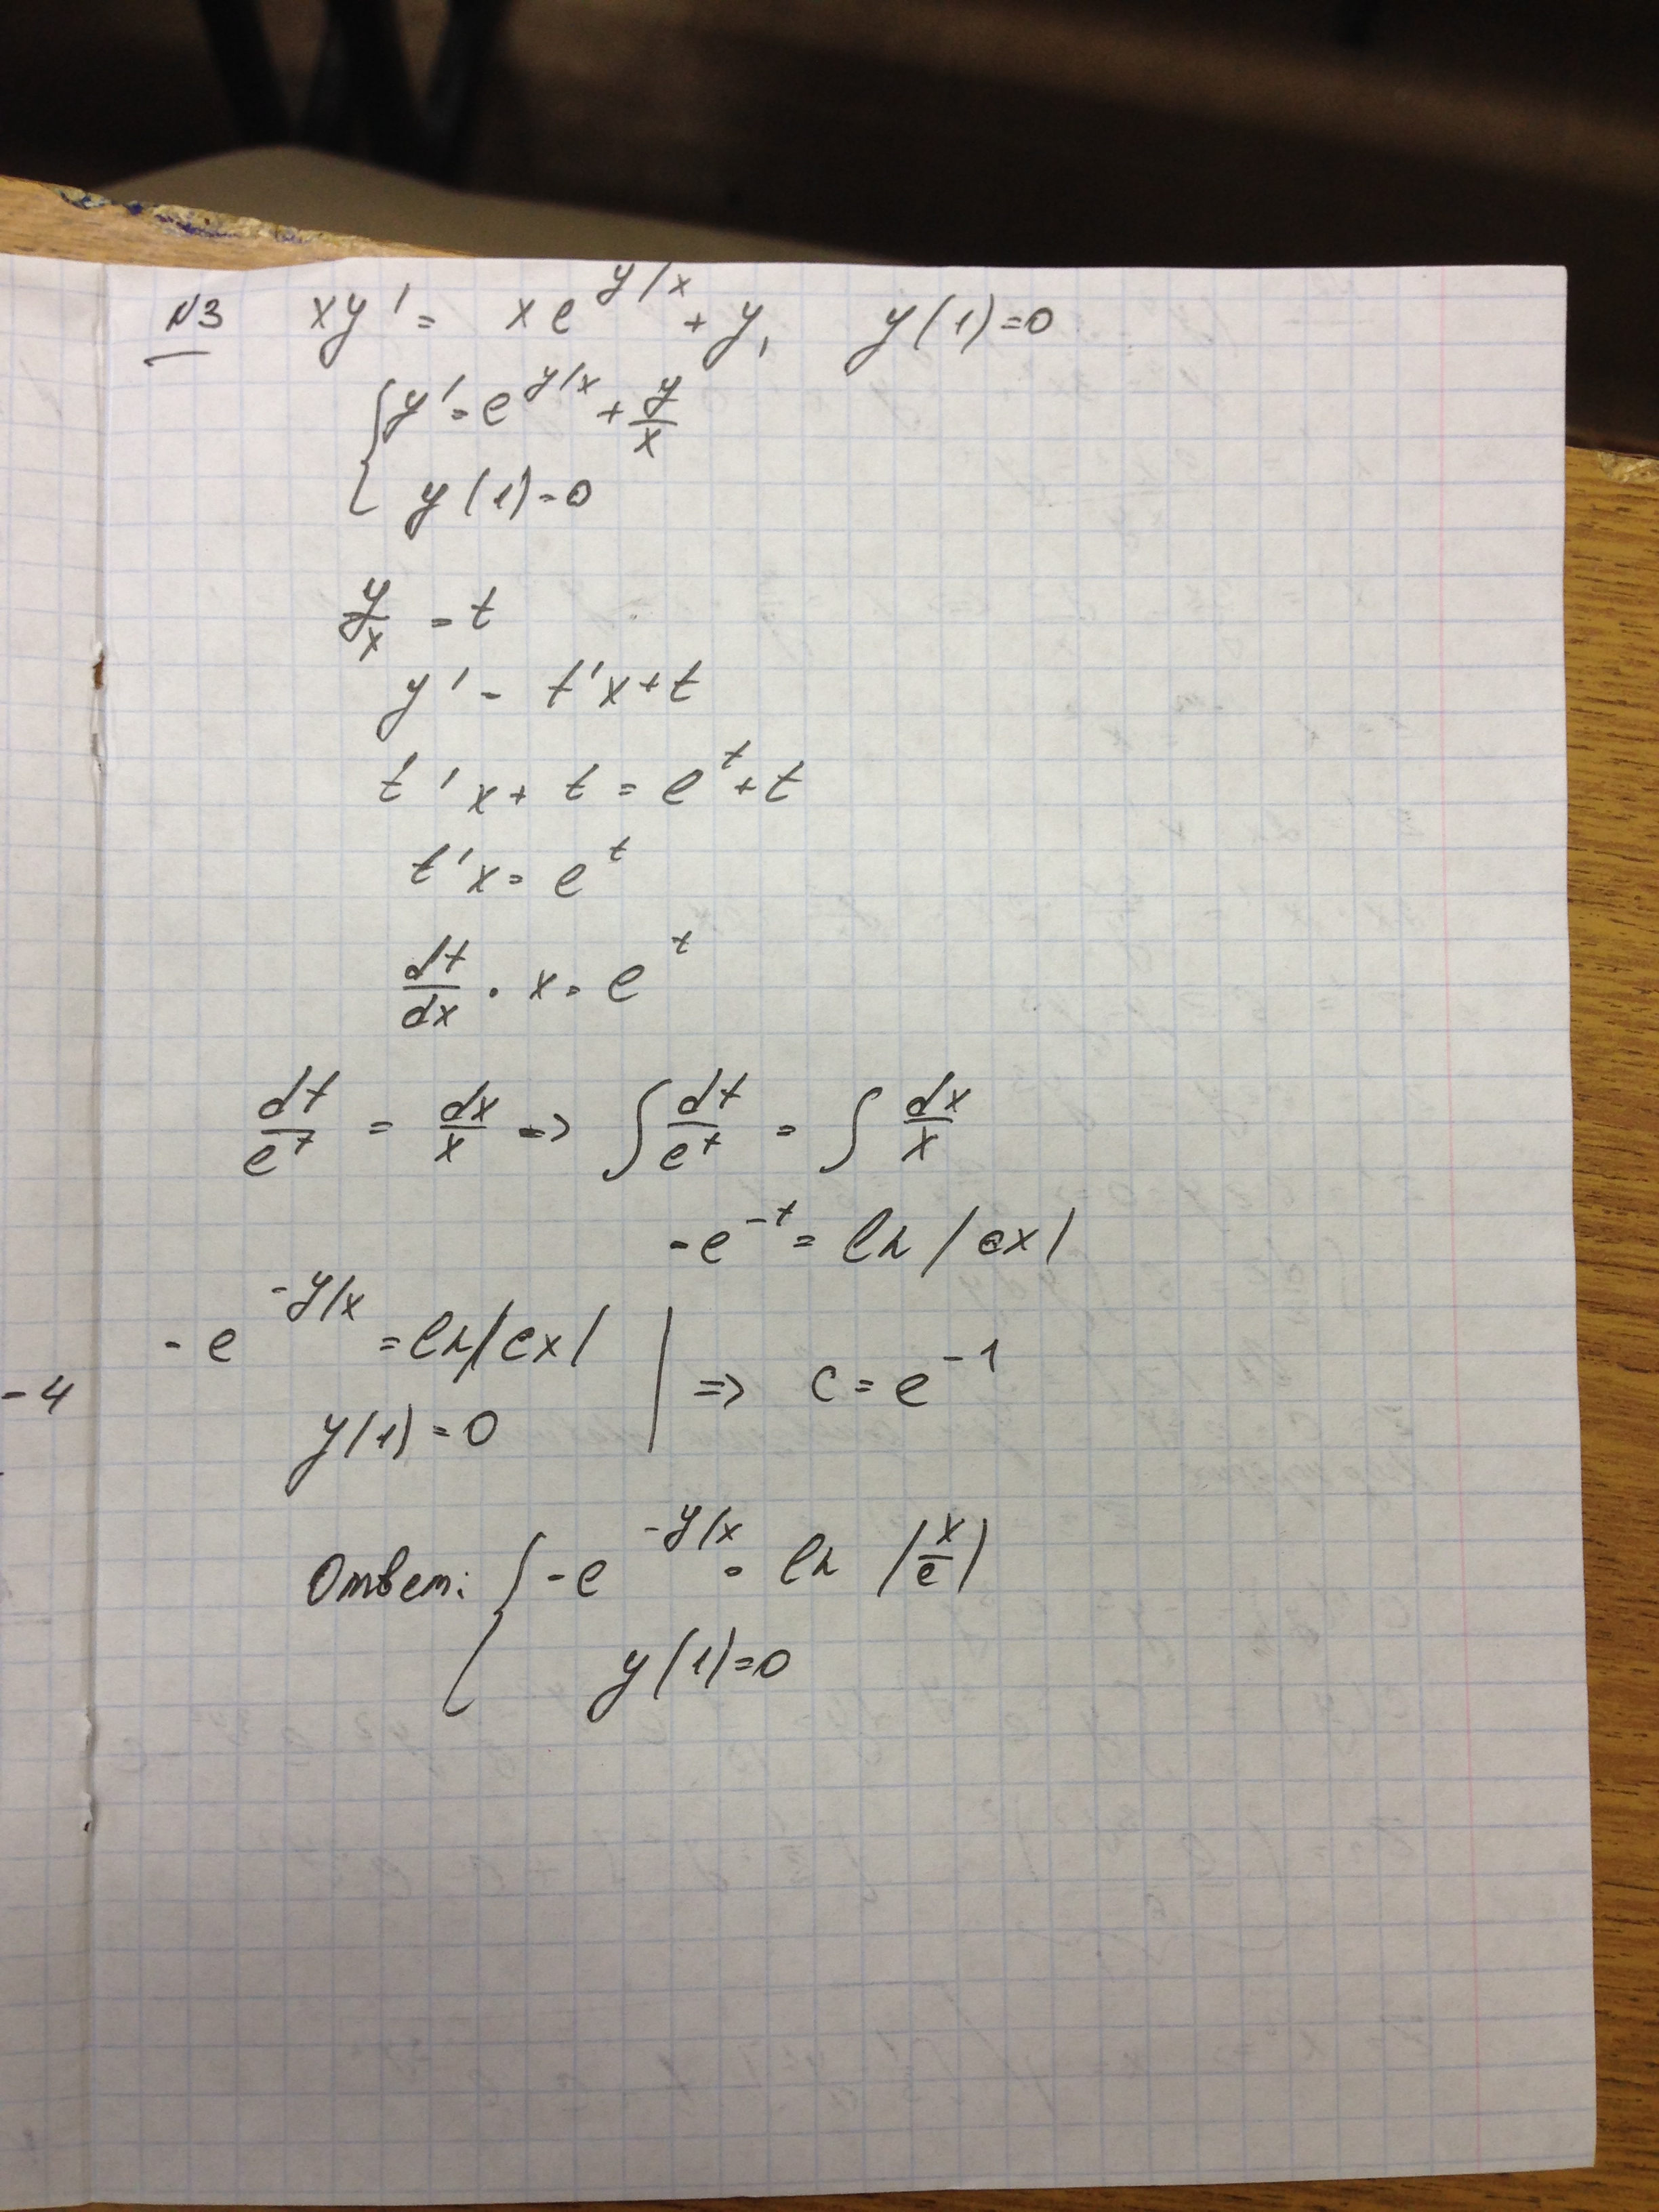 N3 xy' = xe^{y/x} + y, y(1)=0
{ y' = e^{y/x} + y/x
y(1)=0
y/x = t
y' = t'x+t
t'x + t = e^t + t
t'x = e^t
dt/dx · x = e^t
dt/e^t = dx/x => ∫ dt/e^t = ∫ dx/x
-e^{-t} = ln|cx|
-e^{-y/x} = ln|cx|
y(1)=0 | => c = e^{-1}
-4
Ответ: { -e^{-y/x} = ln |x/e|
y(1)=0